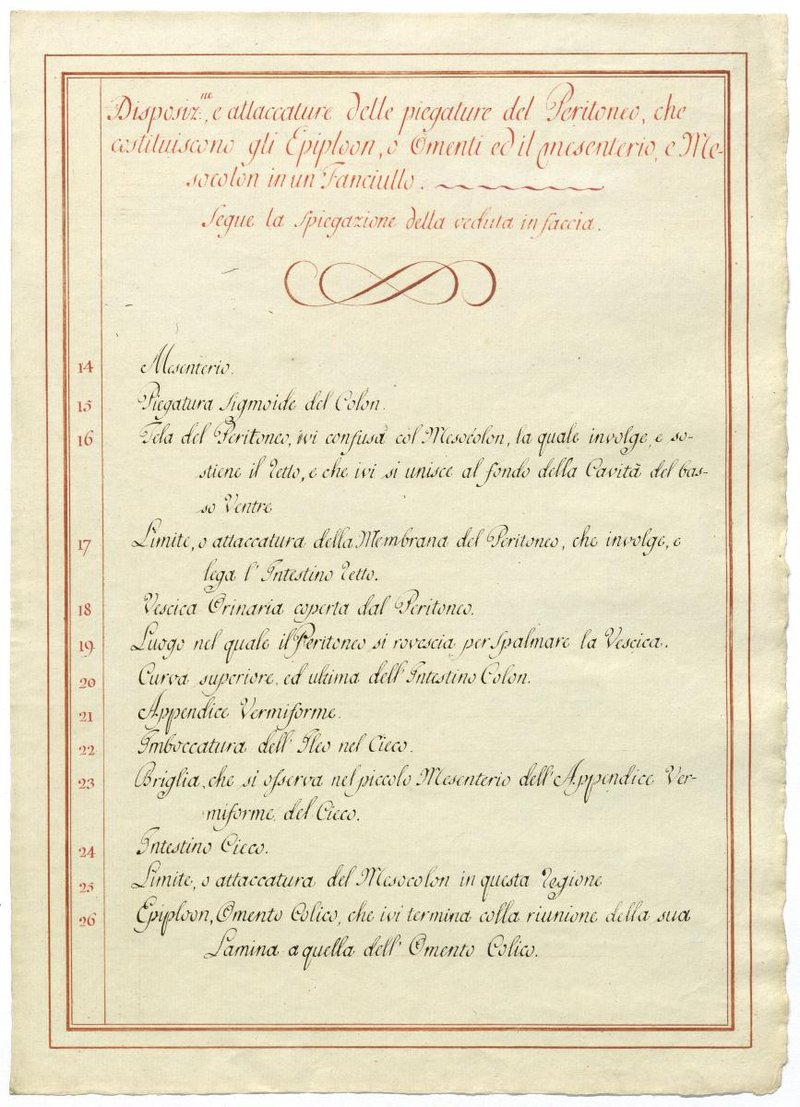 Disposiz.ne, e attaccature delle piegature del Peritoneo, che
costituiscono gli Epiploon, o Omenti ed il mesenterio, e Me-
socolòn in un Fanciullo.
Segue la spiegazione della veduta in faccia.
14 Mesenterio.
15 Piegatura Sigmoide del Colon.
16 Tela del Peritoneo, ivi confusa col Mesocolon, la quale involge, e so-
stiene il Retto, e che ivi si unisce al fondo della Cavità del bas-
so Ventre
17 Limite, o attaccatura della Membrana del Peritoneo, che involge, e
lega l' Intestino Retto.
18 Vescica Orinaria coperta dal Peritoneo.
19 Luogo nel quale il Peritoneo si rovescia per spalmare la Vescica.
20 Curva superiore, ed ultima dell' Intestino Colon.
21 Appendice Vermiforme.
22 Imboccatura dell' Ileo nel Cieco.
23 Briglia, che si osserva nel piccolo Mesenterio dell' Appendice Ver-
miforme del Cieco.
24 Intestino Cieco.
25 Limite, o attaccatura del Mesocolon in questa Regione
26 Epiploon, Omento Colico, che ivi termina colla riunione della sua
Lamina a quella dell' Omento Colico.